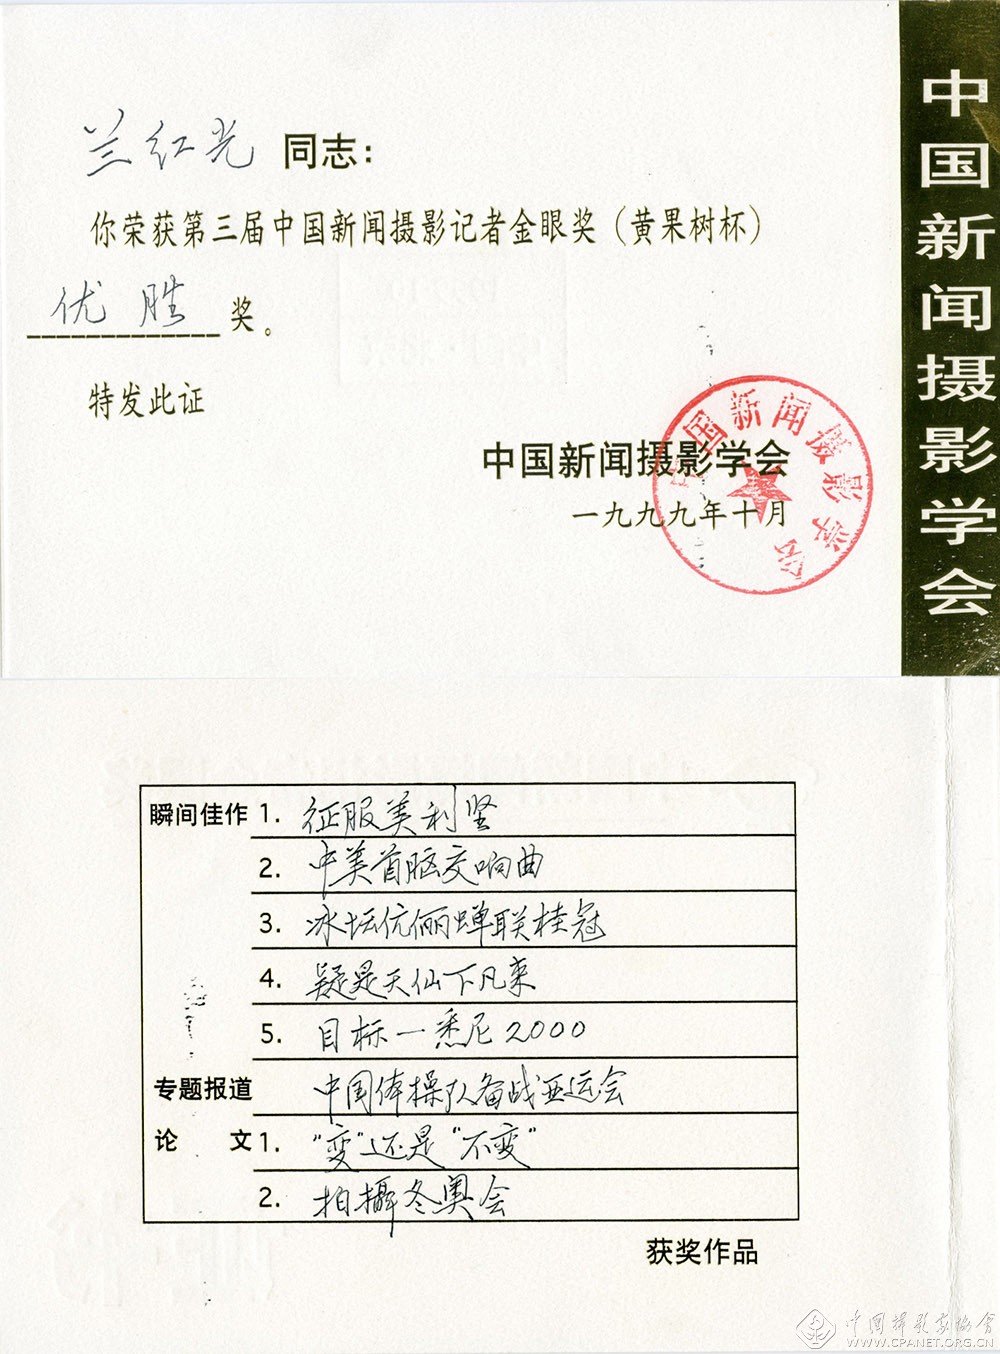 兰红光 同志：
你荣获第三届中国新闻摄影记者金眼奖（黄果树杯）
优胜 奖。
特发此证
中国新闻摄影学会
一九九九年十月
中国新闻摄影学会
中国新闻摄影学会
瞬间佳作 1. 征服美利坚
2. 中美首脑交响曲
3. 冰坛伉俪蝉联桂冠
4. 疑是天仙下凡来
5. 目标一悉尼2000
专题报道 中国体操队备战亚运会
论文 1. “变”还是“不变”
2. 拍攝冬奥会
获奖作品
中国摄影家协会
WWW.CPANET.ORG.CN